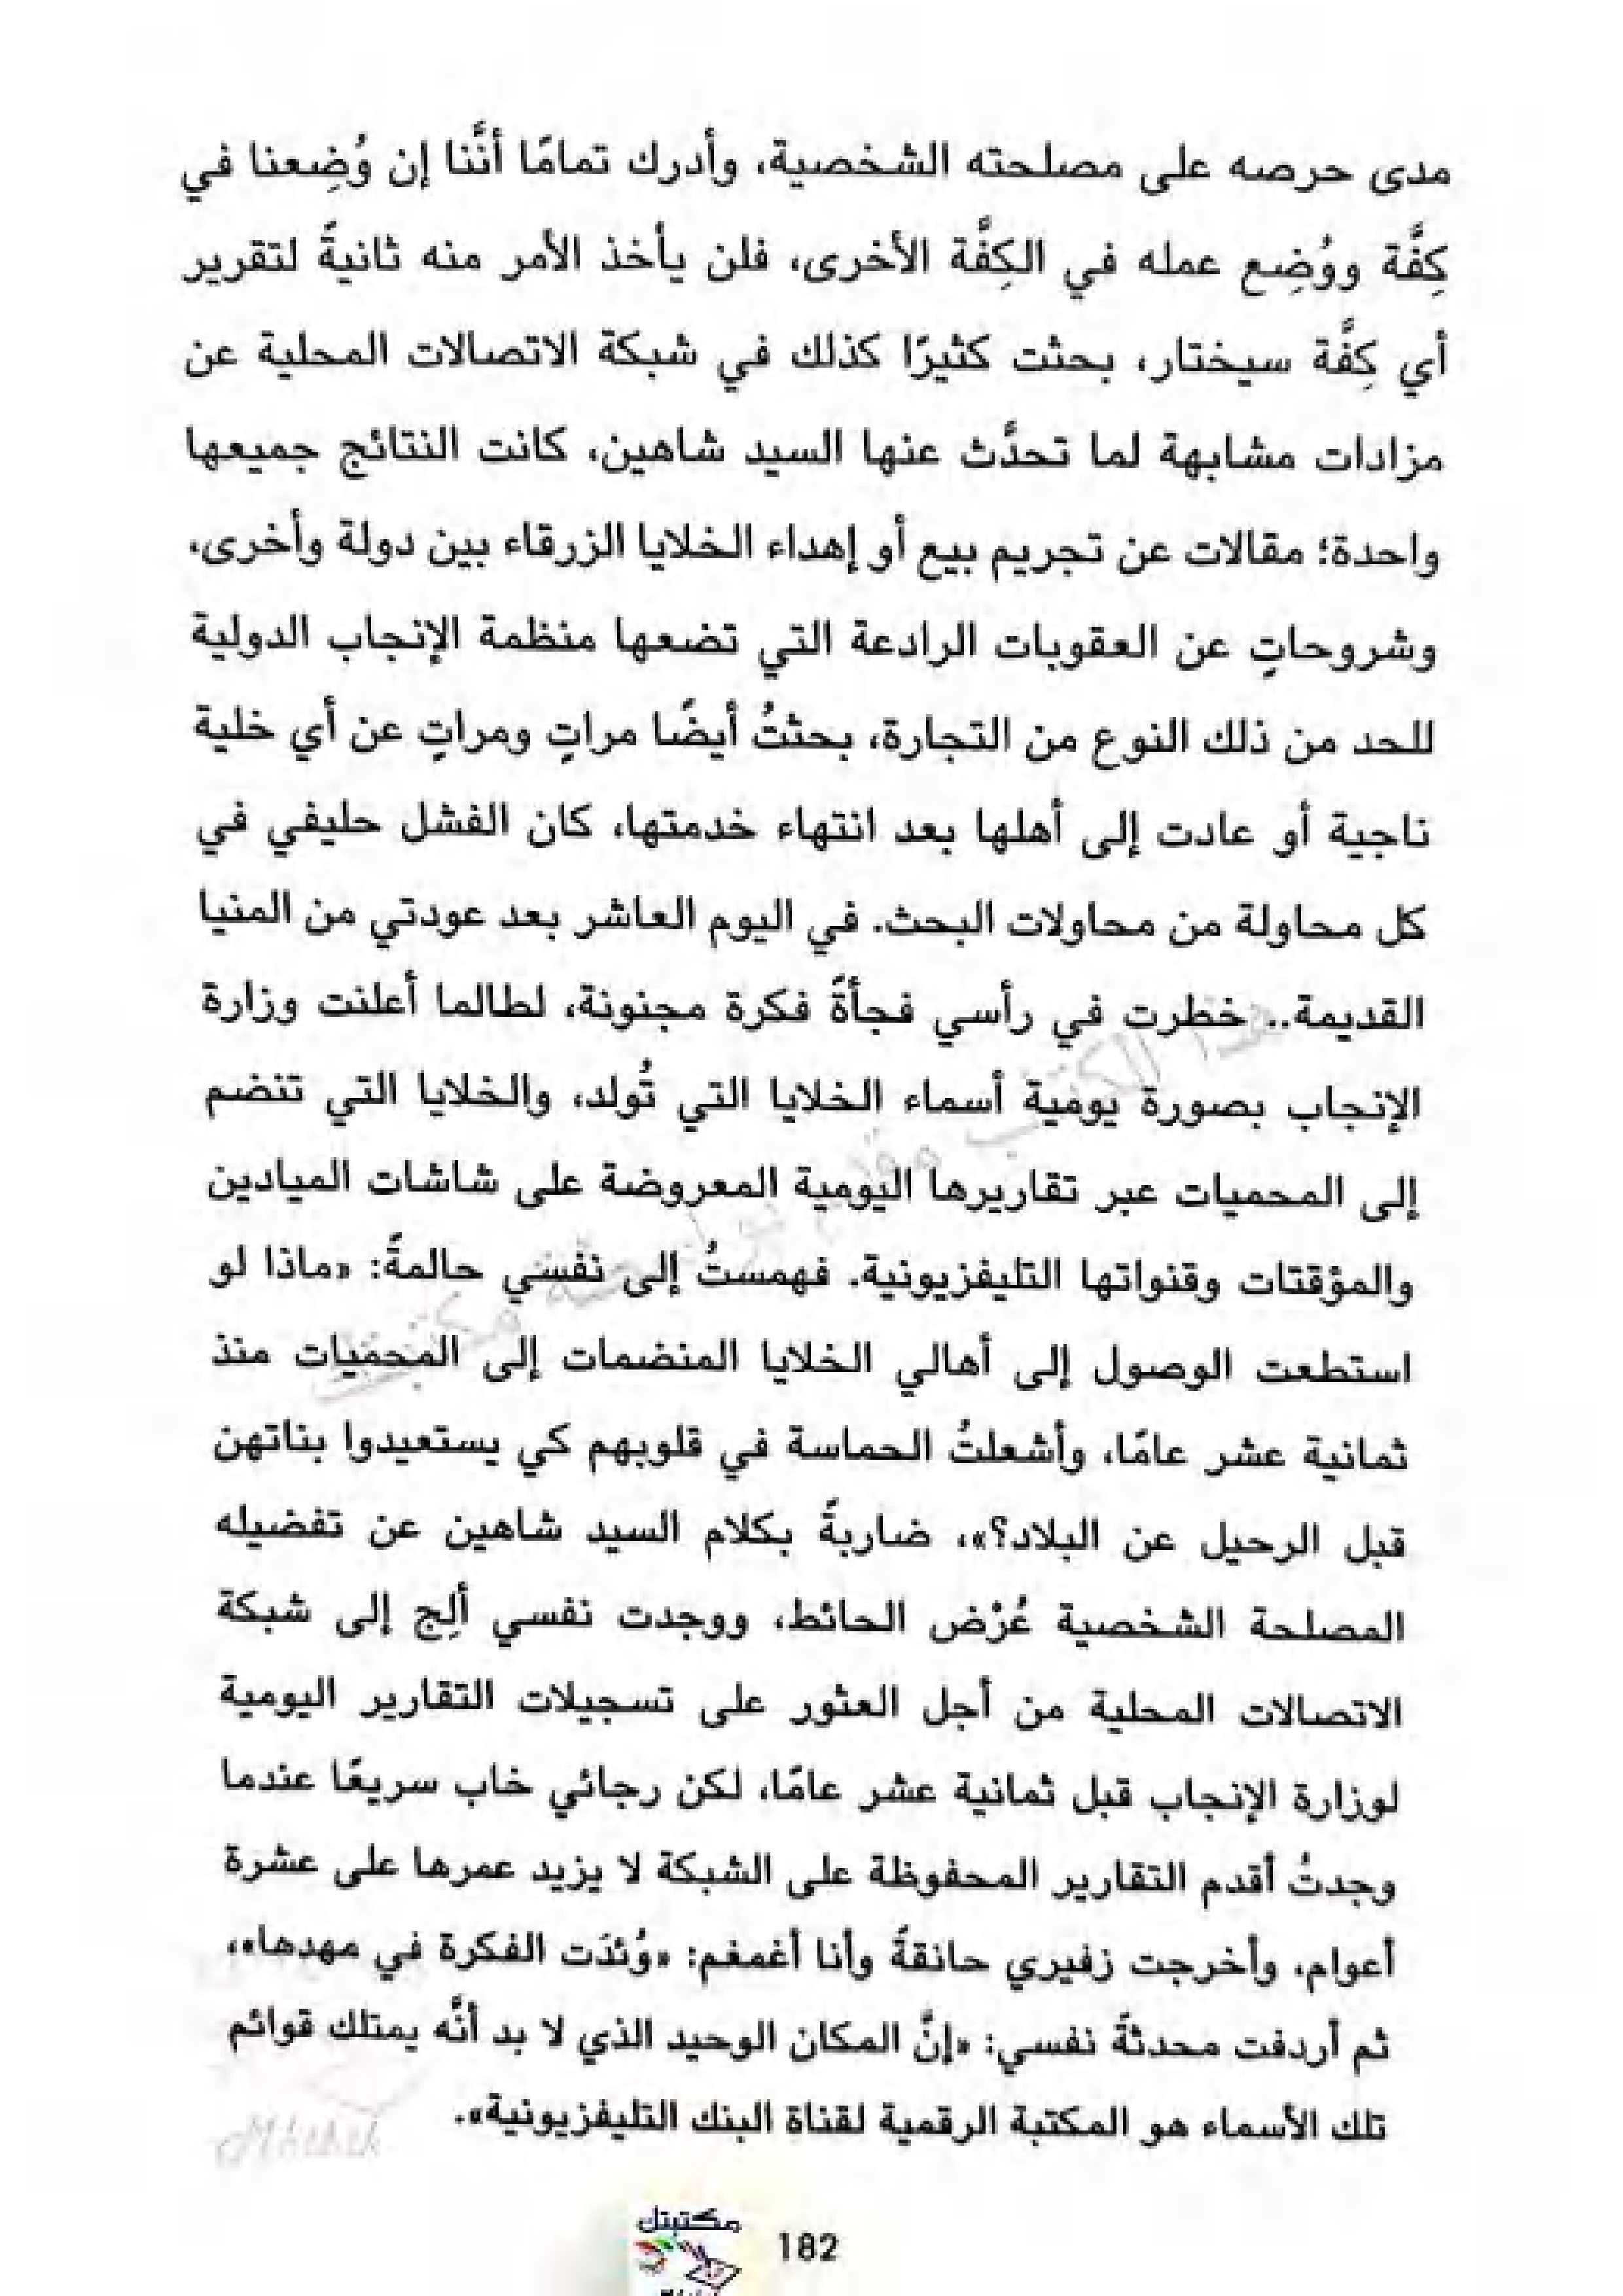 مدى حرصه على مصلحته الشخصية، وأدرك تمامًا أنَّنا إن وُضِعنا في
كِفَّة ووُضِع عمله في الكِفَّة الأخرى، فلن يأخذ الأمر منه ثانيةً لتقرير
أي كِفَّة سيختار، بحثت كثيرًا كذلك في شبكة الاتصالات المحلية عن
مزادات مشابهة لما تحدَّث عنها السيد شاهين، كانت النتائج جميعها
واحدة؛ مقالات عن تجريم بيع أو إهداء الخلايا الزرقاء بين دولة وأخرى،
وشروحاتٍ عن العقوبات الرادعة التي تضعها منظمة الإنجاب الدولية
للحد من ذلك النوع من التجارة، بحثتُ أيضًا مراتٍ ومراتٍ عن أي خلية
ناجية أو عادت إلى أهلها بعد انتهاء خدمتها، كان الفشل حليفي في
كل محاولة من محاولات البحث. في اليوم العاشر بعد عودتي من المنيا
القديمة.. خطرت في رأسي فجأةً فكرة مجنونة، لطالما أعلنت وزارة
الإنجاب بصورة يومية أسماء الخلايا التي تُولد، والخلايا التي تنضم
إلى المحميات عبر تقاريرها اليومية المعروضة على شاشات الميادين
والمؤقتات وقنواتها التليفزيونية. فهمستُ إلى نفسي حالمةً: «ماذا لو
استطعت الوصول إلى أهالي الخلايا المنضمات إلى المحميات منذ
ثمانية عشر عامًا، وأشعلتُ الحماسة في قلوبهم كي يستعيدوا بناتهن
قبل الرحيل عن البلاد؟»، ضاربةً بكلام السيد شاهين عن تفضيله
المصلحة الشخصية عُرْض الحائط، ووجدت نفسي ألِج إلى شبكة
الاتصالات المحلية من أجل العثور على تسجيلات التقارير اليومية
لوزارة الإنجاب قبل ثمانية عشر عامًا، لكن رجائي خاب سريعًا عندما
وجدتُ أقدم التقارير المحفوظة على الشبكة لا يزيد عمرها على عشرة
أعوام، وأخرجت زفيري حانقةً وأنا أغمغم: «وُئدَت الفكرة في مهدها»،
ثم أردفت محدثةً نفسي: «إنَّ المكان الوحيد الذي لا بد أنَّه يمتلك قوائم
تلك الأسماء هو المكتبة الرقمية لقناة البنك التليفزيونية».
مكتبتك
182